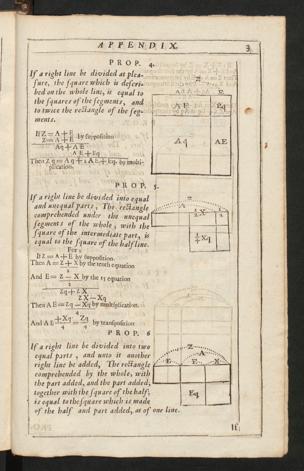 APPENDIX. 3
PROP. 4.
If a right line be divided at plea-
sure, the square which is descri-
bed on the whole line, is equal to
the squares of the segments, and
to twice the rectangle of the seg-
ments.
If Z = A + E by supposition
Z = A + E
Aq + A E
A E + Eq
Then Zq = Aq + 2 A E + Eq. by multi-
plication.
Z
A E
Eq
Aq
AE
PROP. 5.
If a right line be divided into equal
and unequal parts, The rectangle
comprehended under the unequal
segments of the whole, with the
square of the intermediate part, is
equal to the square of the half line.
For;
If Z = A + E by supposition.
Then A = Z + X by the tenth equation
2
And E = Z — X by the 11 equation
2
Zq + Z X
Z X — Xq
Then A E = Zq — Xq by multiplication.
4
And A E + Xq = Zq by transposition
4 4
Z
½ X
½ Xq
PROP. 6
If a right line be divided into two
equal parts, and unto it another
right line be added, The rectangle
comprehended by the whole, with
the part added, and the part added,
together with the square of the half,
is equal to the square which is made
of the half and part added, as of one line.
Z
A
E E X
Eq
If